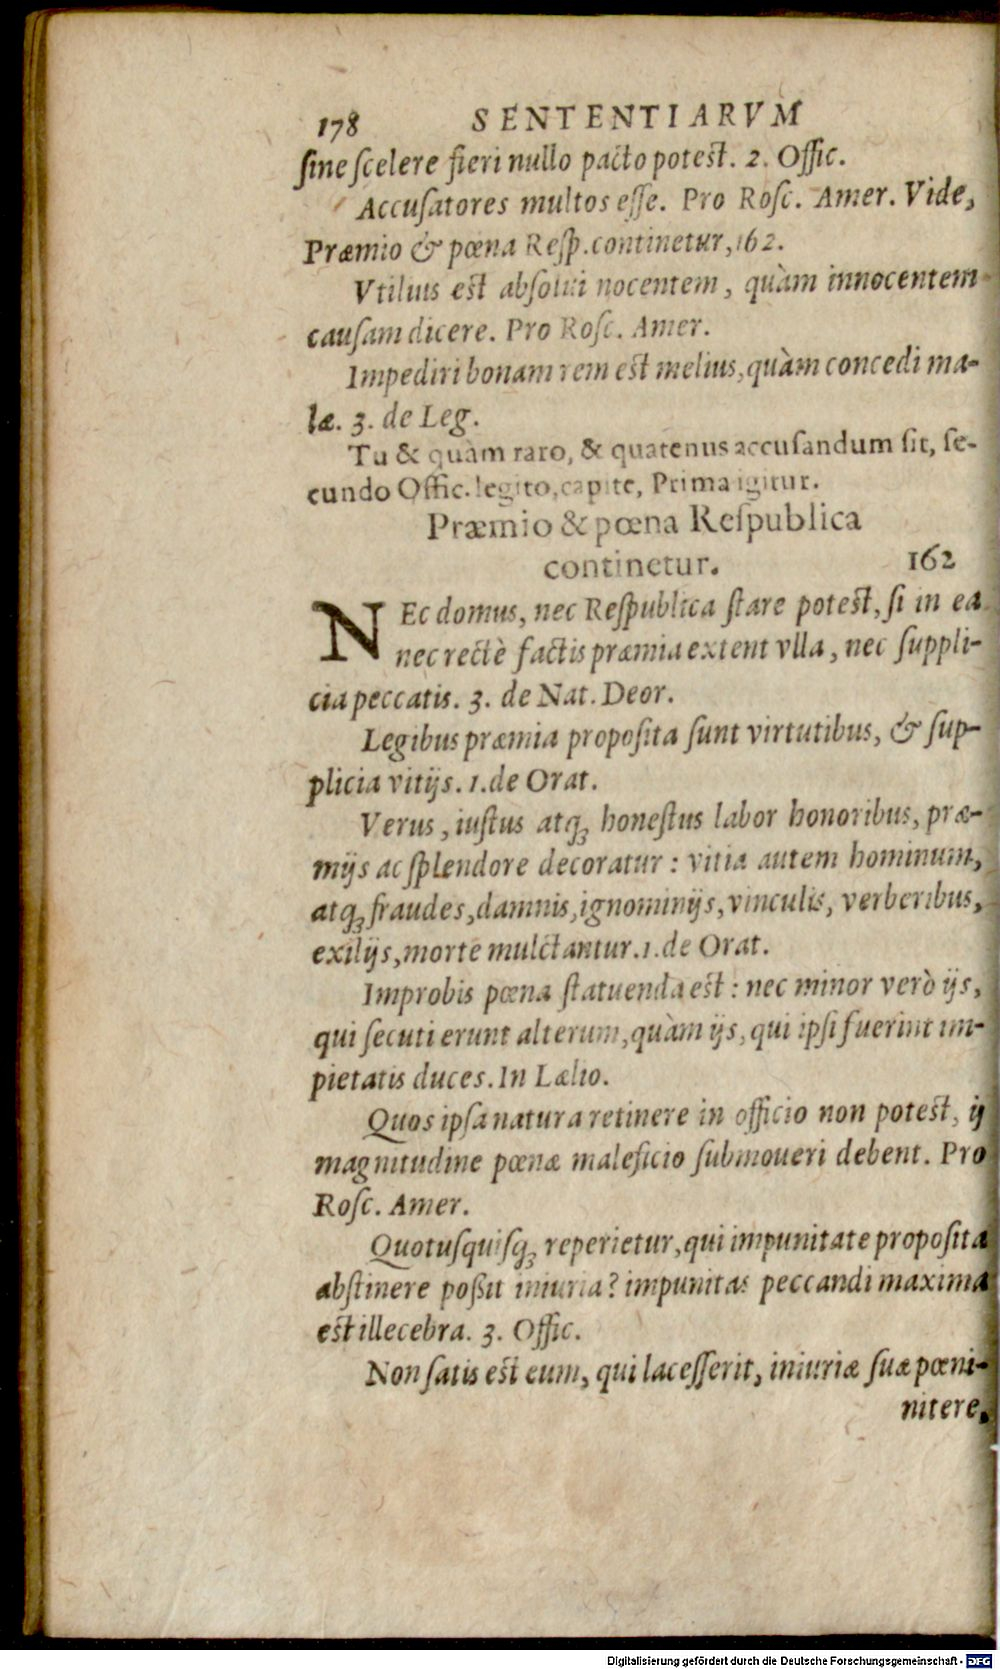 178 SENTENTIARVM
ſine ſcelere fieri nullo pacto poteſt. 2. Offic.
Accuſatores multos eſſe. Pro Roſc. Amer. Vide,
Præmio & pœna Reſp. continetur, 162.
Vtilius eſt abſolui nocentem, quàm innocentem
cauſam dicere. Pro Roſc. Amer.
Impediri bonam rem eſt melius, quàm concedi ma-
læ. 3. de Leg.
Tu & quàm raro, & quatenus accuſandum ſit, ſe-
cundo Offic. legito, capite, Prima igitur.
Præmio & pœna Reſpublica
continetur. 162
NEc domus, nec Reſpublica ſtare poteſt, ſi in ea
nec rectè factis præmia extent vlla, nec ſuppli-
cia peccatis. 3. de Nat. Deor.
Legibus præmia propoſita ſunt virtutibus, & ſup-
plicia vitijs. 1. de Orat.
Verus, iuſtus atq; honeſtus labor honoribus, præ-
mijs ac ſplendore decoratur: vitia autem hominum,
atq; fraudes, damnis, ignominijs, vinculis, verberibus,
exilijs, morte mulctantur. 1. de Orat.
Improbis pœna ſtatuenda eſt: nec minor verò ijs,
qui ſecuti erunt alterum, quàm ijs, qui ipſi fuerint im-
pietatis duces. In Lælio.
Quos ipſa natura retinere in officio non poteſt, ij
magnitudine pœnæ maleficio ſubmoueri debent. Pro
Roſc. Amer.
Quotuſquiſq; reperietur, qui impunitate propoſita
abſtinere poßit iniuria? impunitas peccandi maxima
eſt illecebra. 3. Offic.
Non ſatis eſt eum, qui laceſſerit, iniuriæ ſuæ pœni-
nitere,
Digitalisierung gefördert durch die Deutsche Forschungsgemeinschaft - DFG